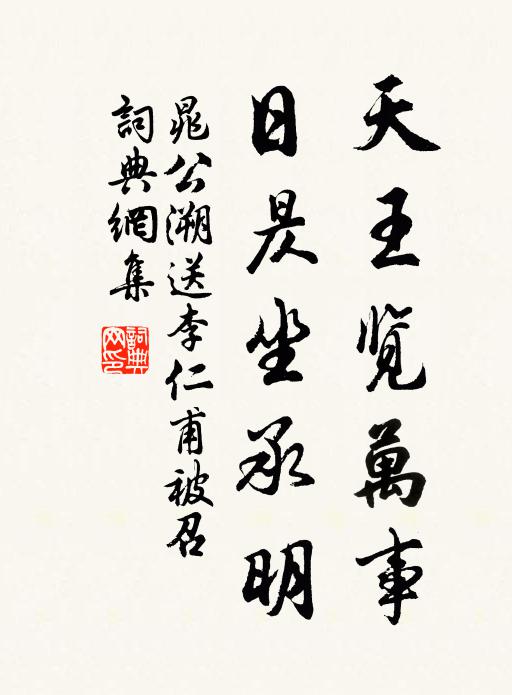 天王览萬事
日昃坐承明
晁公溯送李仁甫被召
詞典網集
詞典網印